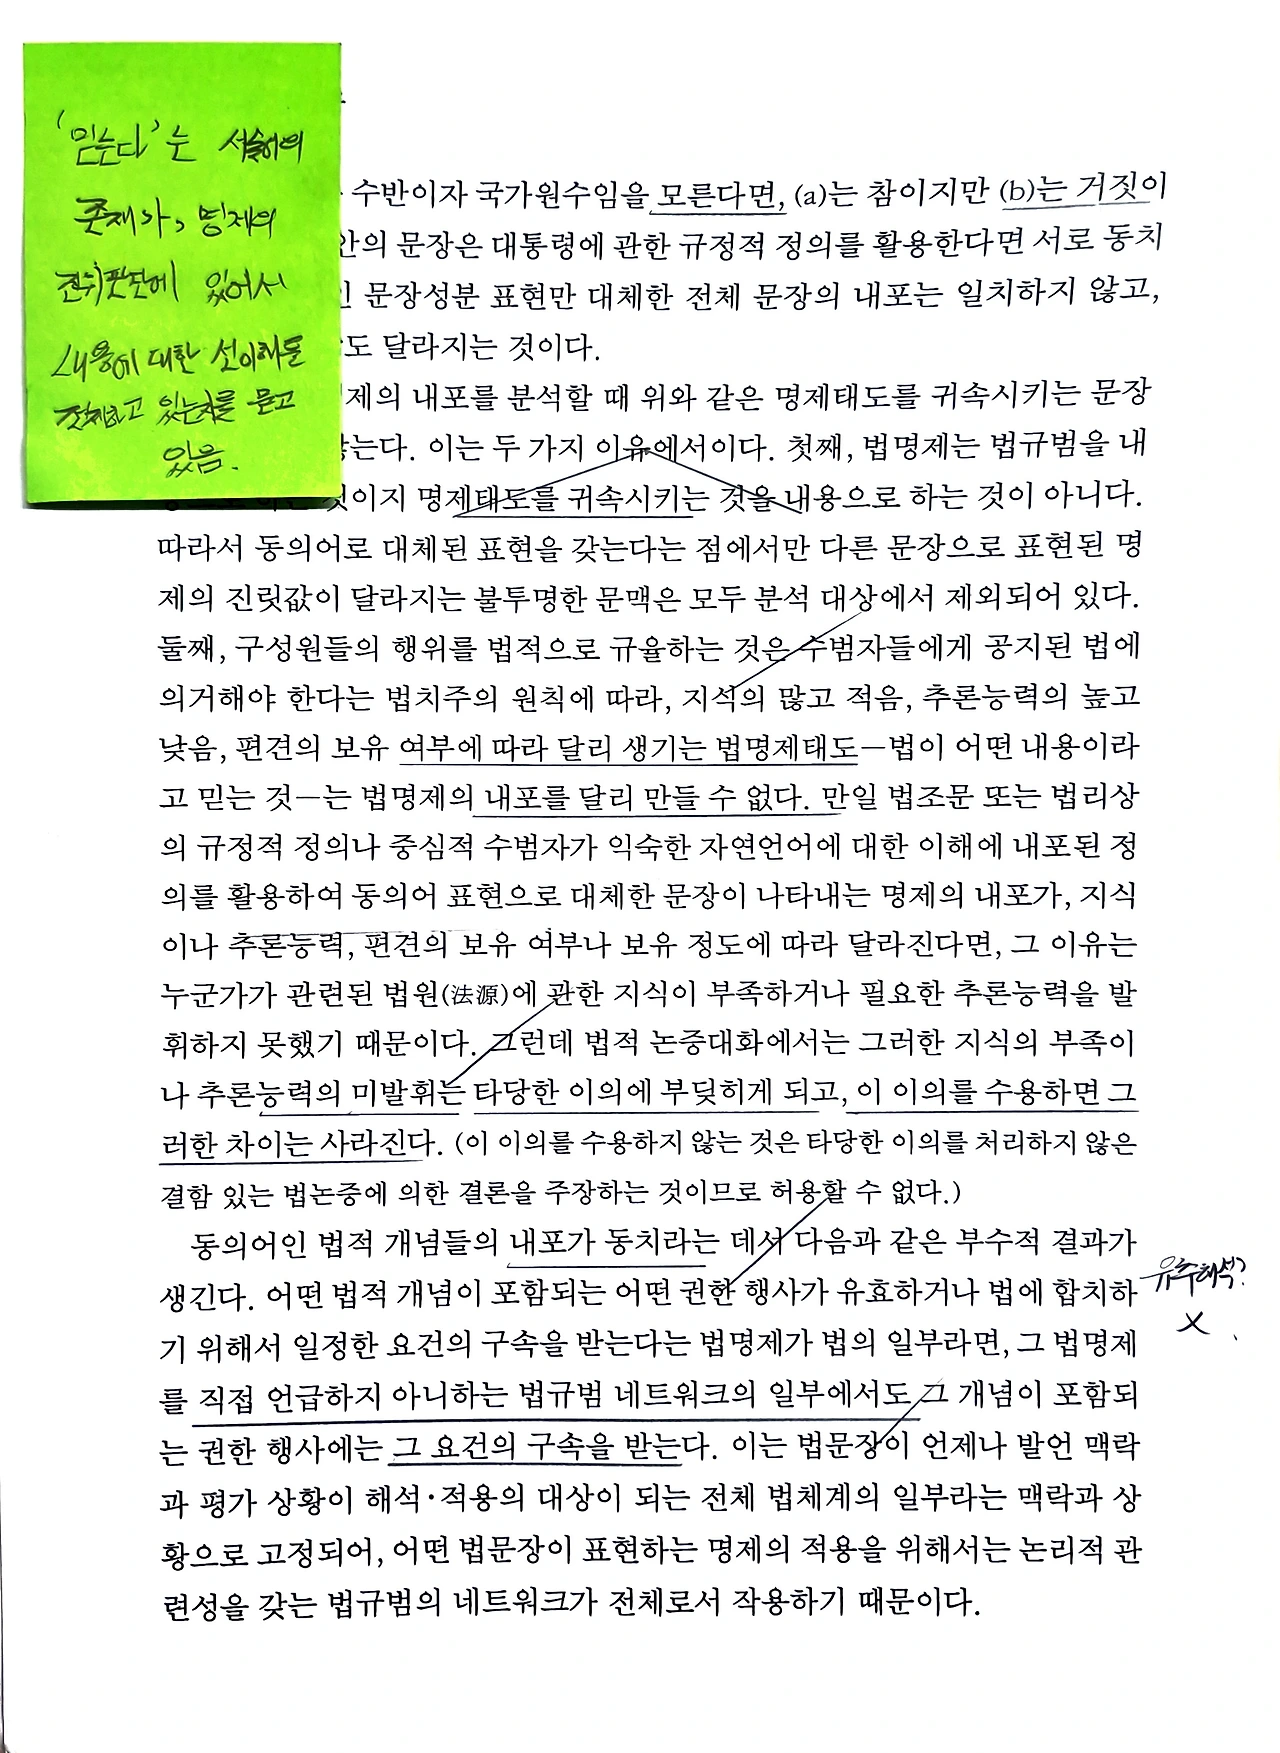 '믿는다'는 서술어의
존재가, 명제의
진위판단에 있어서
<내용에 대한 선이해를
전제하고 있는지를 묻고
있음.
수반이자 국가원수임을 모른다면, (a)는 참이지만 (b)는 거짓이
안의 문장은 대통령에 관한 규정적 정의를 활용한다면 서로 동치
인 문장성분 표현만 대체한 전체 문장의 내포는 일치하지 않고,
도 달라지는 것이다.
제의 내포를 분석할 때 위와 같은 명제태도를 귀속시키는 문장
않는다. 이는 두 가지 이유에서이다. 첫째, 법명제는 법규범을 내
것이지 명제태도를 귀속시키는 것을 내용으로 하는 것이 아니다.
따라서 동의어로 대체된 표현을 갖는다는 점에서만 다른 문장으로 표현된 명
제의 진릿값이 달라지는 불투명한 문맥은 모두 분석 대상에서 제외되어 있다.
둘째, 구성원들의 행위를 법적으로 규율하는 것은 수범자들에게 공지된 법에
의거해야 한다는 법치주의 원칙에 따라, 지식의 많고 적음, 추론능력의 높고
낮음, 편견의 보유 여부에 따라 달리 생기는 법명제태도—법이 어떤 내용이라
고 믿는 것—는 법명제의 내포를 달리 만들 수 없다. 만일 법조문 또는 법리상
의 규정적 정의나 중심적 수범자가 익숙한 자연언어에 대한 이해에 내포된 정
의를 활용하여 동의어 표현으로 대체한 문장이 나타내는 명제의 내포가, 지식
이나 추론능력, 편견의 보유 여부나 보유 정도에 따라 달라진다면, 그 이유는
누군가가 관련된 법원(法源)에 관한 지식이 부족하거나 필요한 추론능력을 발
휘하지 못했기 때문이다. 그런데 법적 논증대화에서는 그러한 지식의 부족이
나 추론능력의 미발휘는 타당한 이의에 부딪히게 되고, 이 이의를 수용하면 그
러한 차이는 사라진다. (이 이의를 수용하지 않는 것은 타당한 이의를 처리하지 않은
결함 있는 법논증에 의한 결론을 주장하는 것이므로 허용할 수 없다.)
동의어인 법적 개념들의 내포가 동치라는 데서 다음과 같은 부수적 결과가
생긴다. 어떤 법적 개념이 포함되는 어떤 권한 행사가 유효하거나 법에 합치하
기 위해서 일정한 요건의 구속을 받는다는 법명제가 법의 일부라면, 그 법명제
를 직접 언급하지 아니하는 법규범 네트워크의 일부에서도 그 개념이 포함되
는 권한 행사에는 그 요건의 구속을 받는다. 이는 법문장이 언제나 발언 맥락
과 평가 상황이 해석·적용의 대상이 되는 전체 법체계의 일부라는 맥락과 상
황으로 고정되어, 어떤 법문장이 표현하는 명제의 적용을 위해서는 논리적 관
련성을 갖는 법규범의 네트워크가 전체로서 작용하기 때문이다.
유추해석?
X